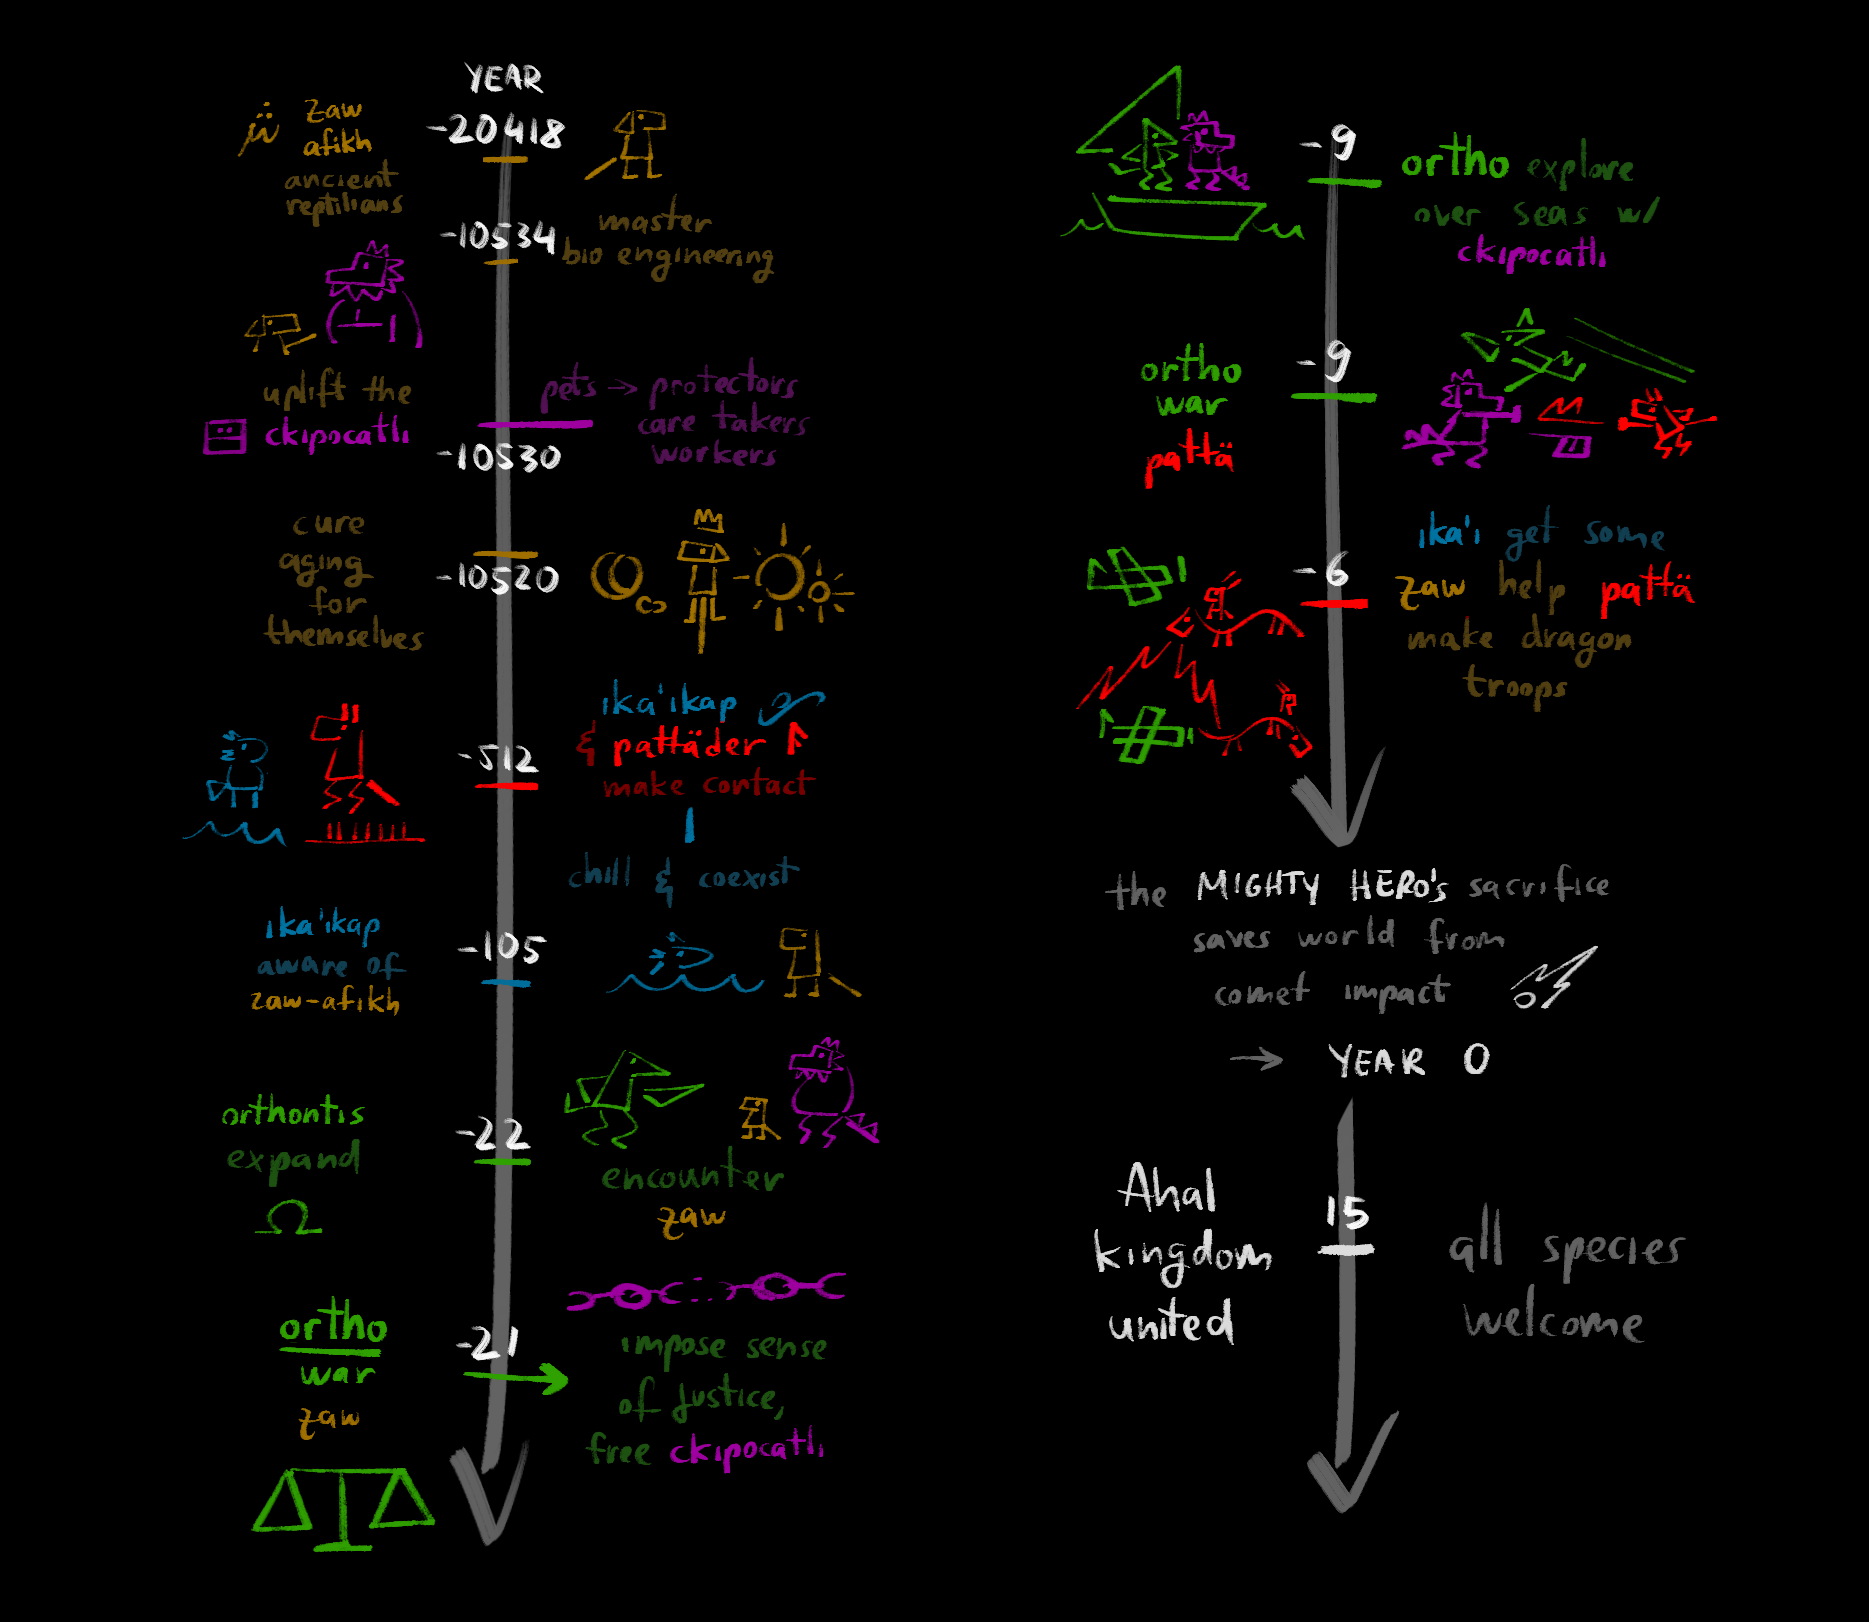 YEAR
zaw
afikh
-20418
ancient
reptilians
-10534
master
bio engineering
uplift the
ckıpocatlı
pets → protectors
care takers
workers
-10530
cure
aging
for
themselves
-10520
ıka'ıkap
& pattäder
make contact
-512
chill & coexist
ıka'ıkap
aware of
zaw-afikh
-105
orthontis
expand
-22
encounter
zaw
ortho
war
zaw
-21
impose sense
of justice,
free ckıpocatlı
-9
ortho explore
over seas w/
ckıpocatlı
ortho
war
pattä
-9
-6
ıka'ı get some
zaw help pattä
make dragon
troops
the MIGHTY HERO's sacrifice
saves world from
comet impact
→ YEAR 0
Ahal
kingdom
united
15
all species
welcome